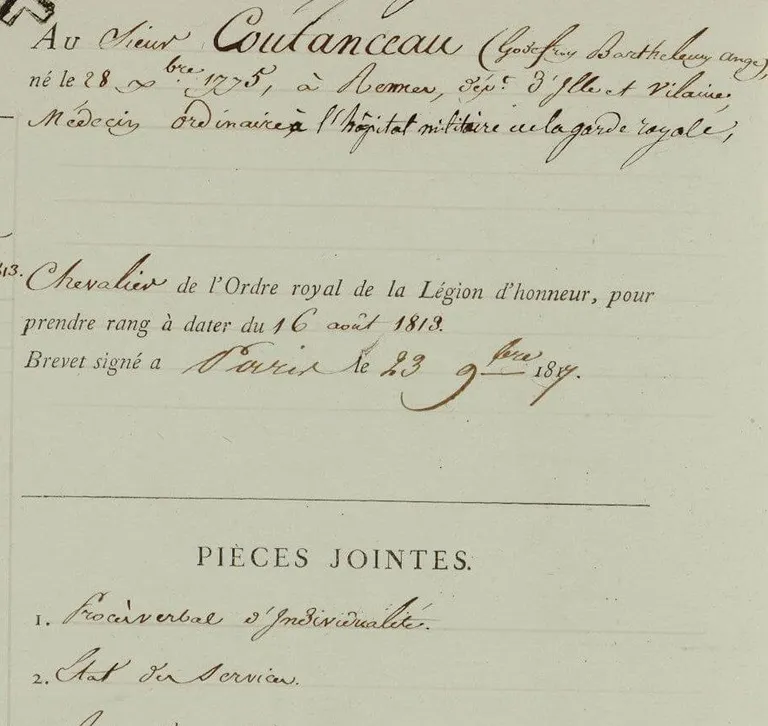 Au Sieur Coutanceau (Godefroy Barthelemy ange),
né le 28 xbre 1775, à Rennes, dépt. d'Ille et Vilaine,
Médecin ordinaire à l'hôpital militaire de la garde royale,
13.
Chevalier de l'Ordre royal de la Légion d'honneur, pour
prendre rang à dater du 16 août 1813.
Brevet signé a Paris le 23 9bre 1817.
PIÈCES JOINTES.
1. Procèsverbal d'Individualité.
2. Etat des services.